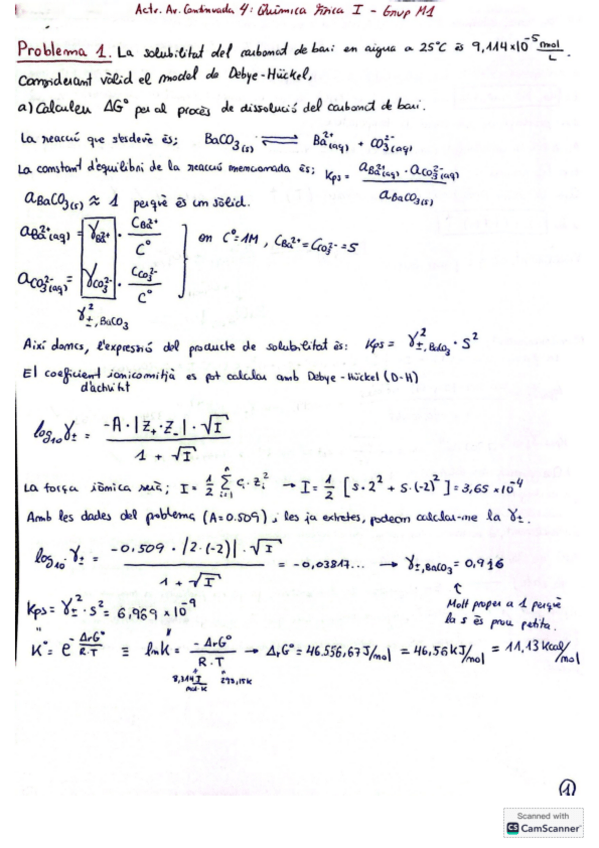 Actv. Av. Continuada 4: Química Física I - Grup M1
Problema 1. La solubilitat del carbonat de bari en aigua a 25°C és 9,114×10⁻⁵ mol/L.
Considerant vàlid el model de Debye-Hückel,
a) Calculeu ΔG° per al procés de dissolució del carbonat de bari.
La reacció que s'esdevé és; BaCO₃(s) ⇌ Ba²⁺(aq) + CO₃²⁻(aq)
La constant d'equilibri de la reacció mencionada és; Kps = a Ba²⁺(aq) · a CO₃²⁻(aq) / a BaCO₃(s)
a BaCO₃(s) ≈ 1 perquè és un sòlid.
a Ba²⁺(aq) = γ Ba²⁺ · C Ba²⁺ / C°
on C°=1M, C Ba²⁺ = C CO₃²⁻ = S
a CO₃²⁻(aq) = γ CO₃²⁻ · C CO₃²⁻ / C°
γ²±,BaCO₃
Així doncs, l'expressió del producte de solubilitat és: Kps = γ²±,BaCO₃ · S²
El coeficient d'activitat ionicomitjà es pot calcular amb Debye-Hückel (D-H)
log₁₀ γ± = -A · |Z₊ · Z₋| · √I / 1 + √I
La força iònica serà; I = 1/2 Σⁿᵢ₌₁ cᵢ · zᵢ² → I = 1/2 [S·2² + S·(-2)²] = 3,65×10⁻⁴
Amb les dades del problema (A=0.509), i les ja extretes, podem calcular-ne la γ±.
log₁₀ γ± = -0,509 · |2·(-2)| · √I / 1 + √I = -0,03817... → γ±,BaCO₃ = 0,916
Molt proper a 1 perquè
la s és prou petita.
Kps = γ±² · S² = 6,969×10⁻⁹
K° = e^(-ΔrG°/R·T) ≡ ln K = -ΔrG° / R·T → ΔrG° = 46.556,67 J/mol = 46,56 kJ/mol = 11,13 kcal/mol
8,314 J/mol·K 298,15K
(1)
Scanned with
CS CamScanner